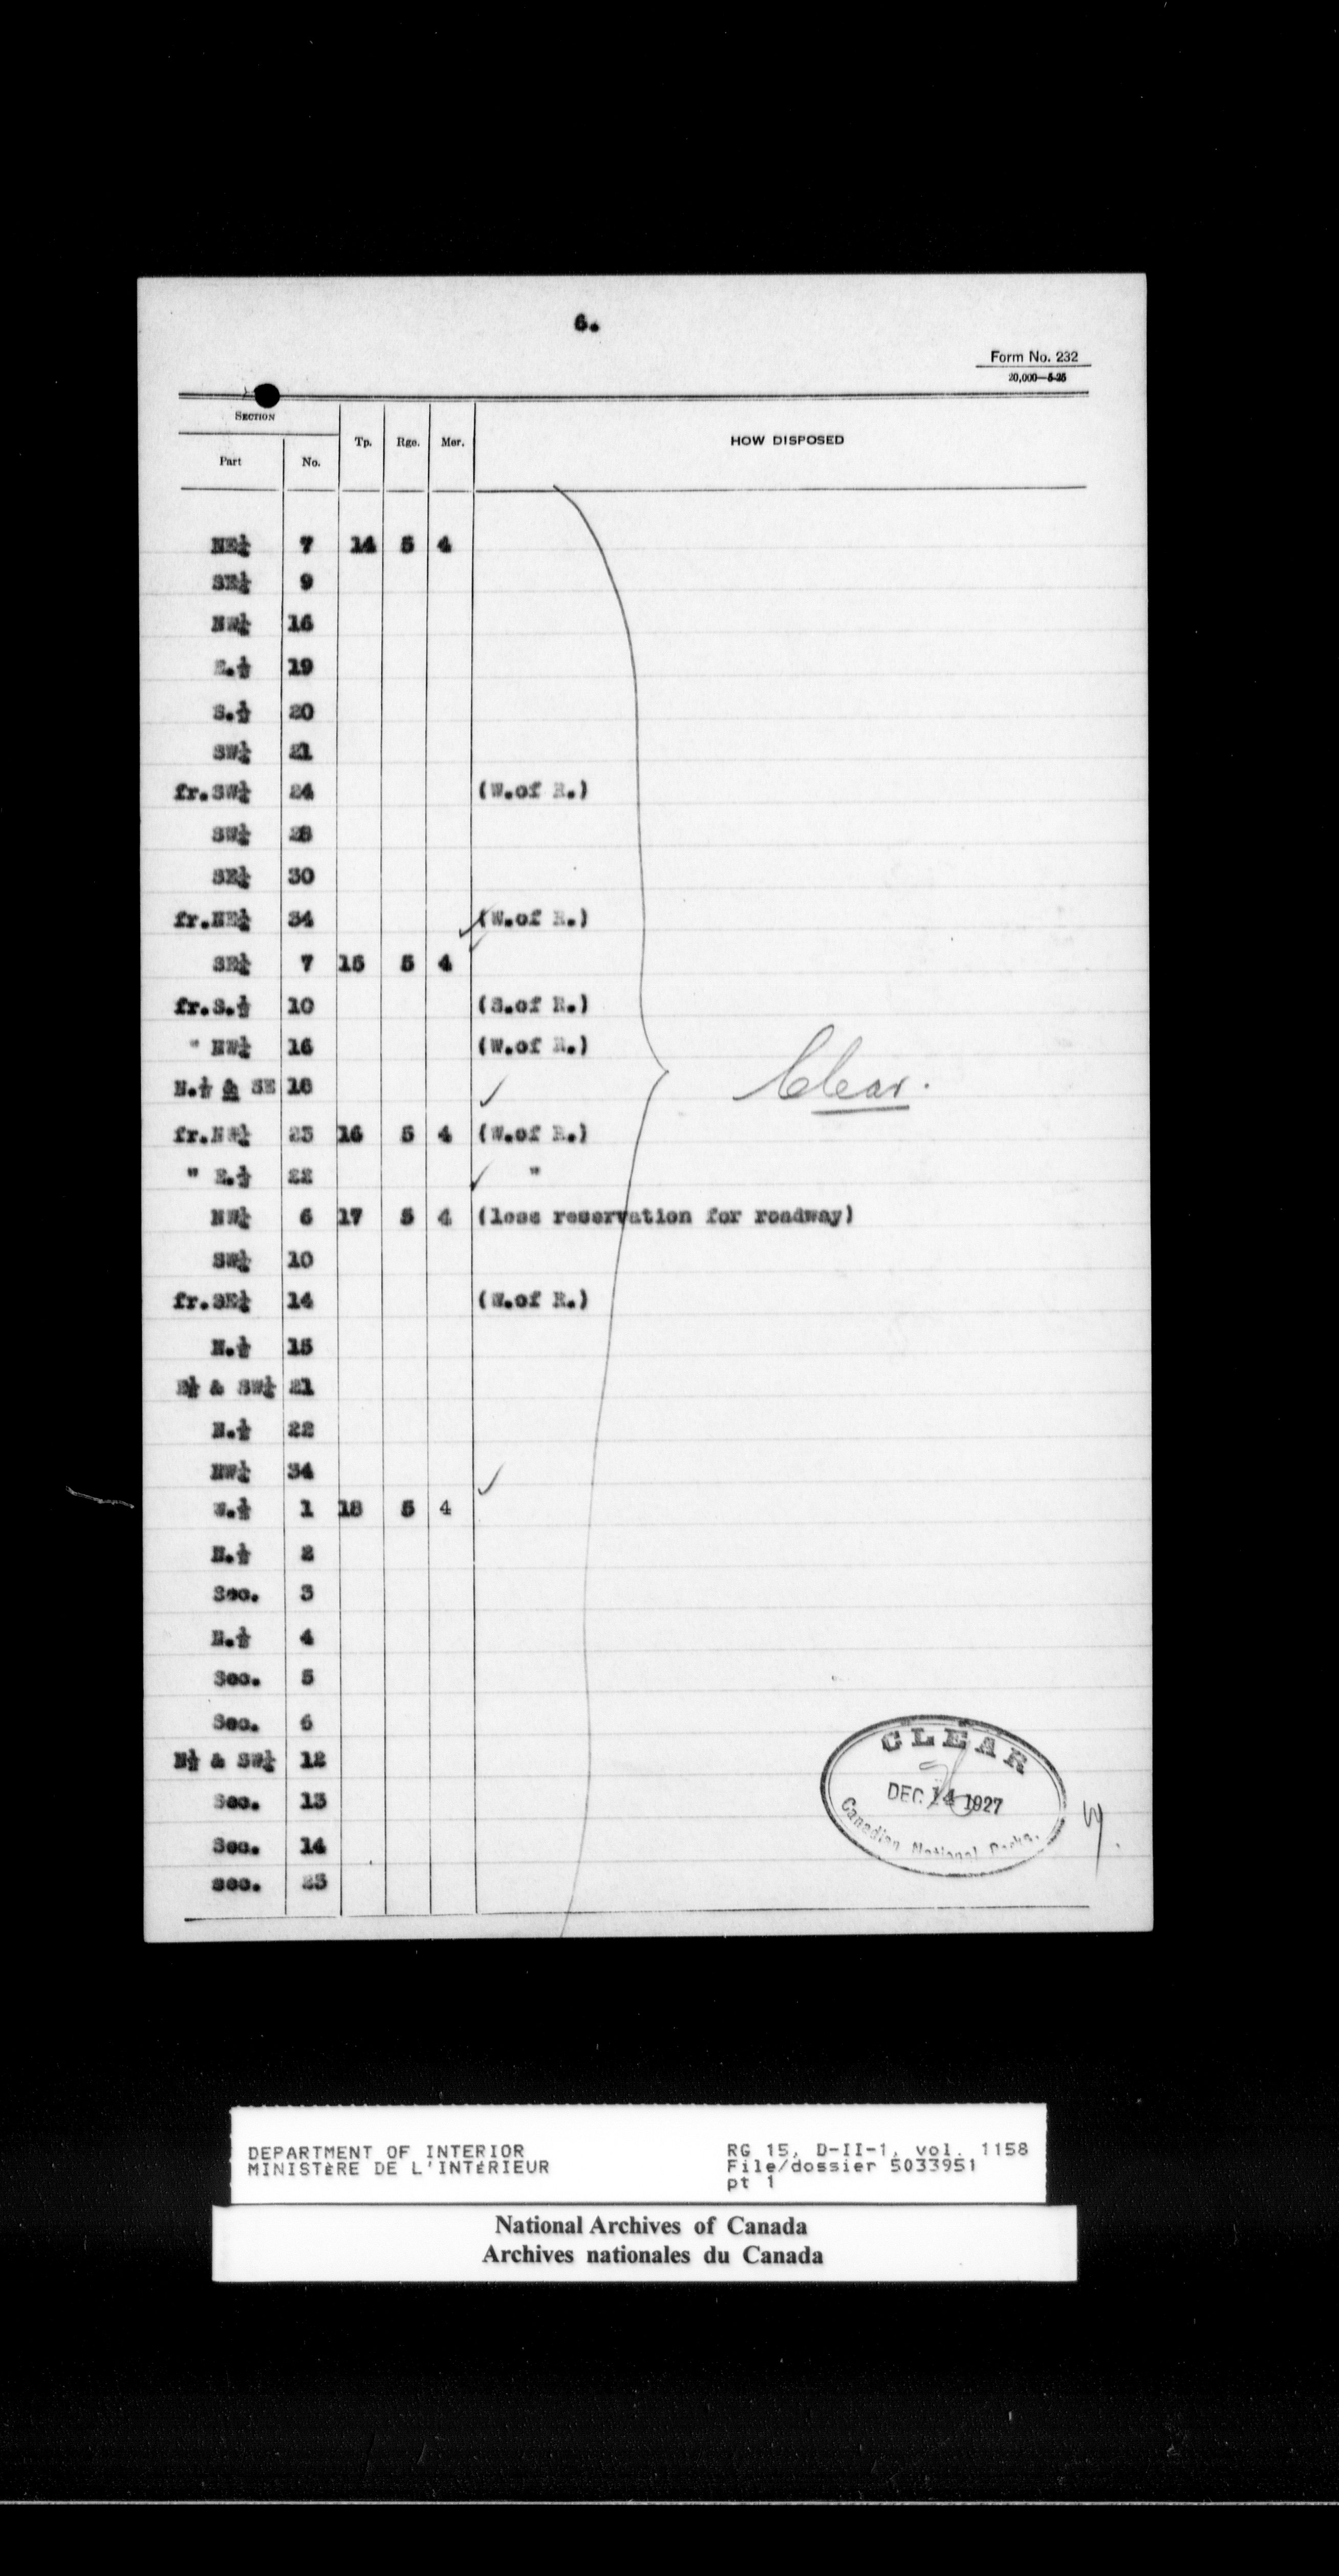 6.
Form No. 232
20,000—5-25
SECTION
Part No. Tp. Rge. Mer. HOW DISPOSED
NE¼ 7 14 5 4
SE¼ 9
NW¼ 16
E.½ 19
S.½ 20
SW¼ 21
fr.SW¼ 24 (W.of R.)
SW¼ 28
SE¼ 30
fr.NE¼ 34 (W.of R.)
SE¼ 7 15 5 4
fr.S.½ 10 (S.of R.)
" NW¼ 16 (W.of R.)
N.½ & SE 18
Clear.
fr.NW¼ 23 16 5 4 (W.of R.)
" E.½ 22 "
NW¼ 6 17 5 4 (less reservation for roadway)
SW¼ 10
fr.SE¼ 14 (W.of R.)
N.½ 15
E½ & SW¼ 21
N.½ 22
NW¼ 34
W.½ 1 18 5 4
N.½ 2
Sec. 3
N.½ 4
Sec. 5
Sec. 6
N½ & SW¼ 12
Sec. 13
Sec. 14
sec. 23
CLEAR
DEC 14 1927
Canadian National Parks.
DEPARTMENT OF INTERIOR
MINISTÈRE DE L'INTÉRIEUR
RG 15, D-II-1, vol. 1158
File/dossier 5033951
pt 1
National Archives of Canada
Archives nationales du Canada